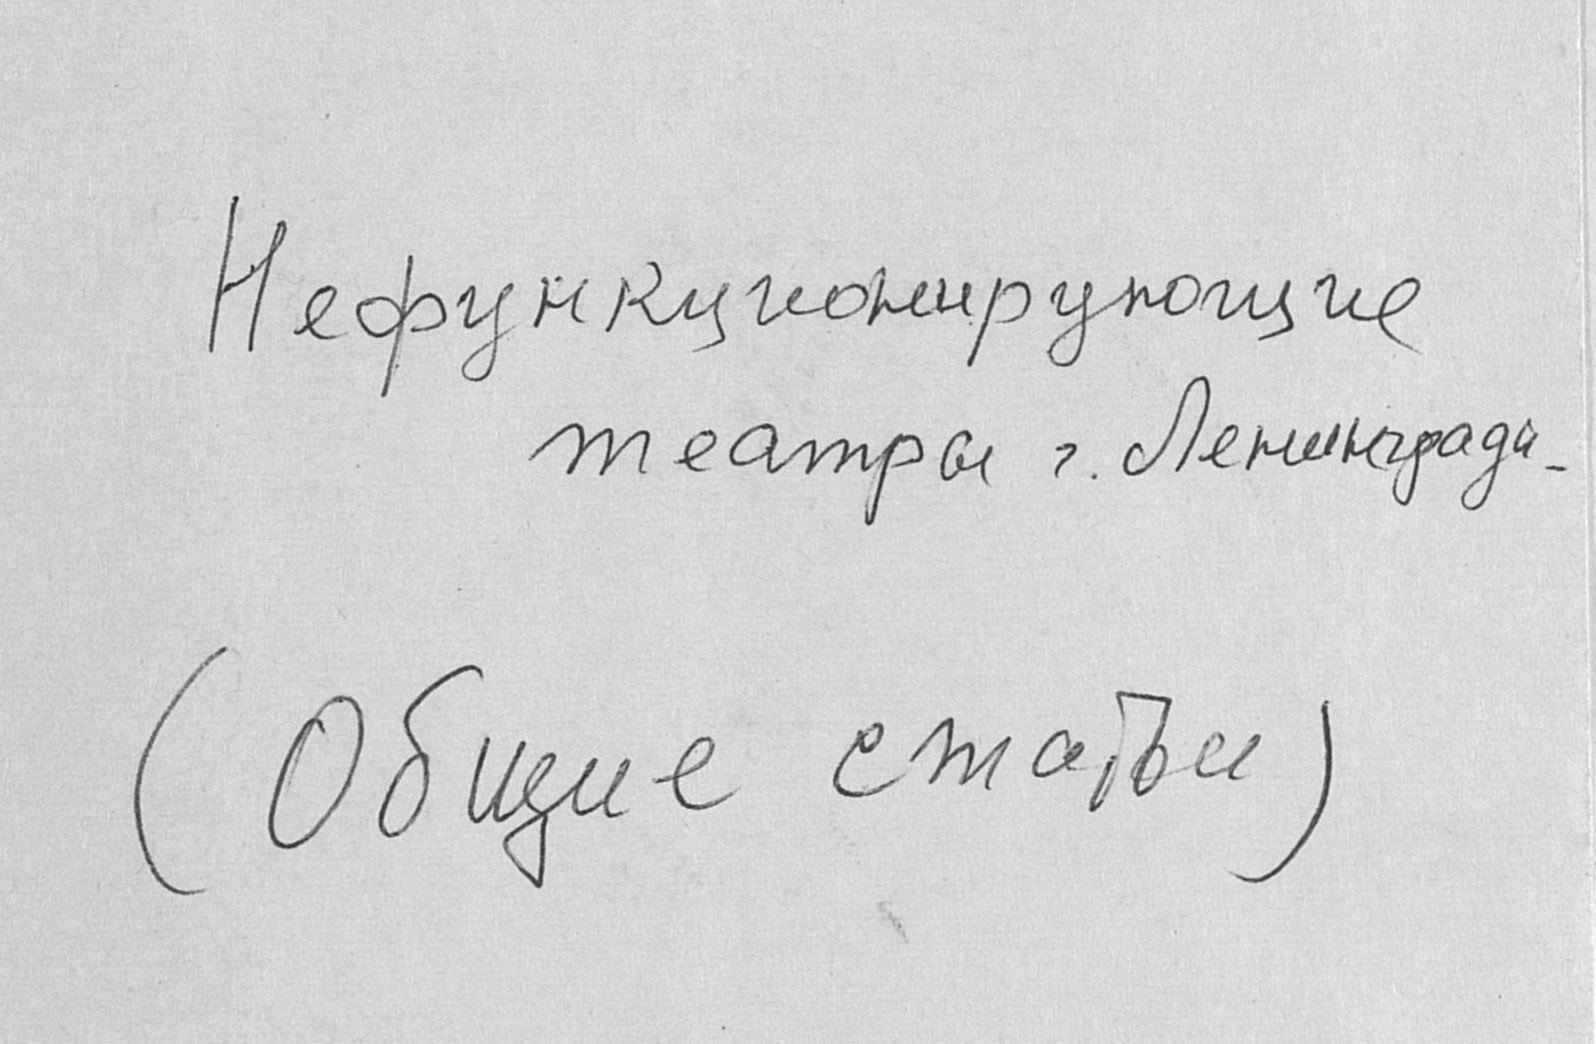 Нефункционирующие
театры г. Ленинграда-
(Общие статьи)